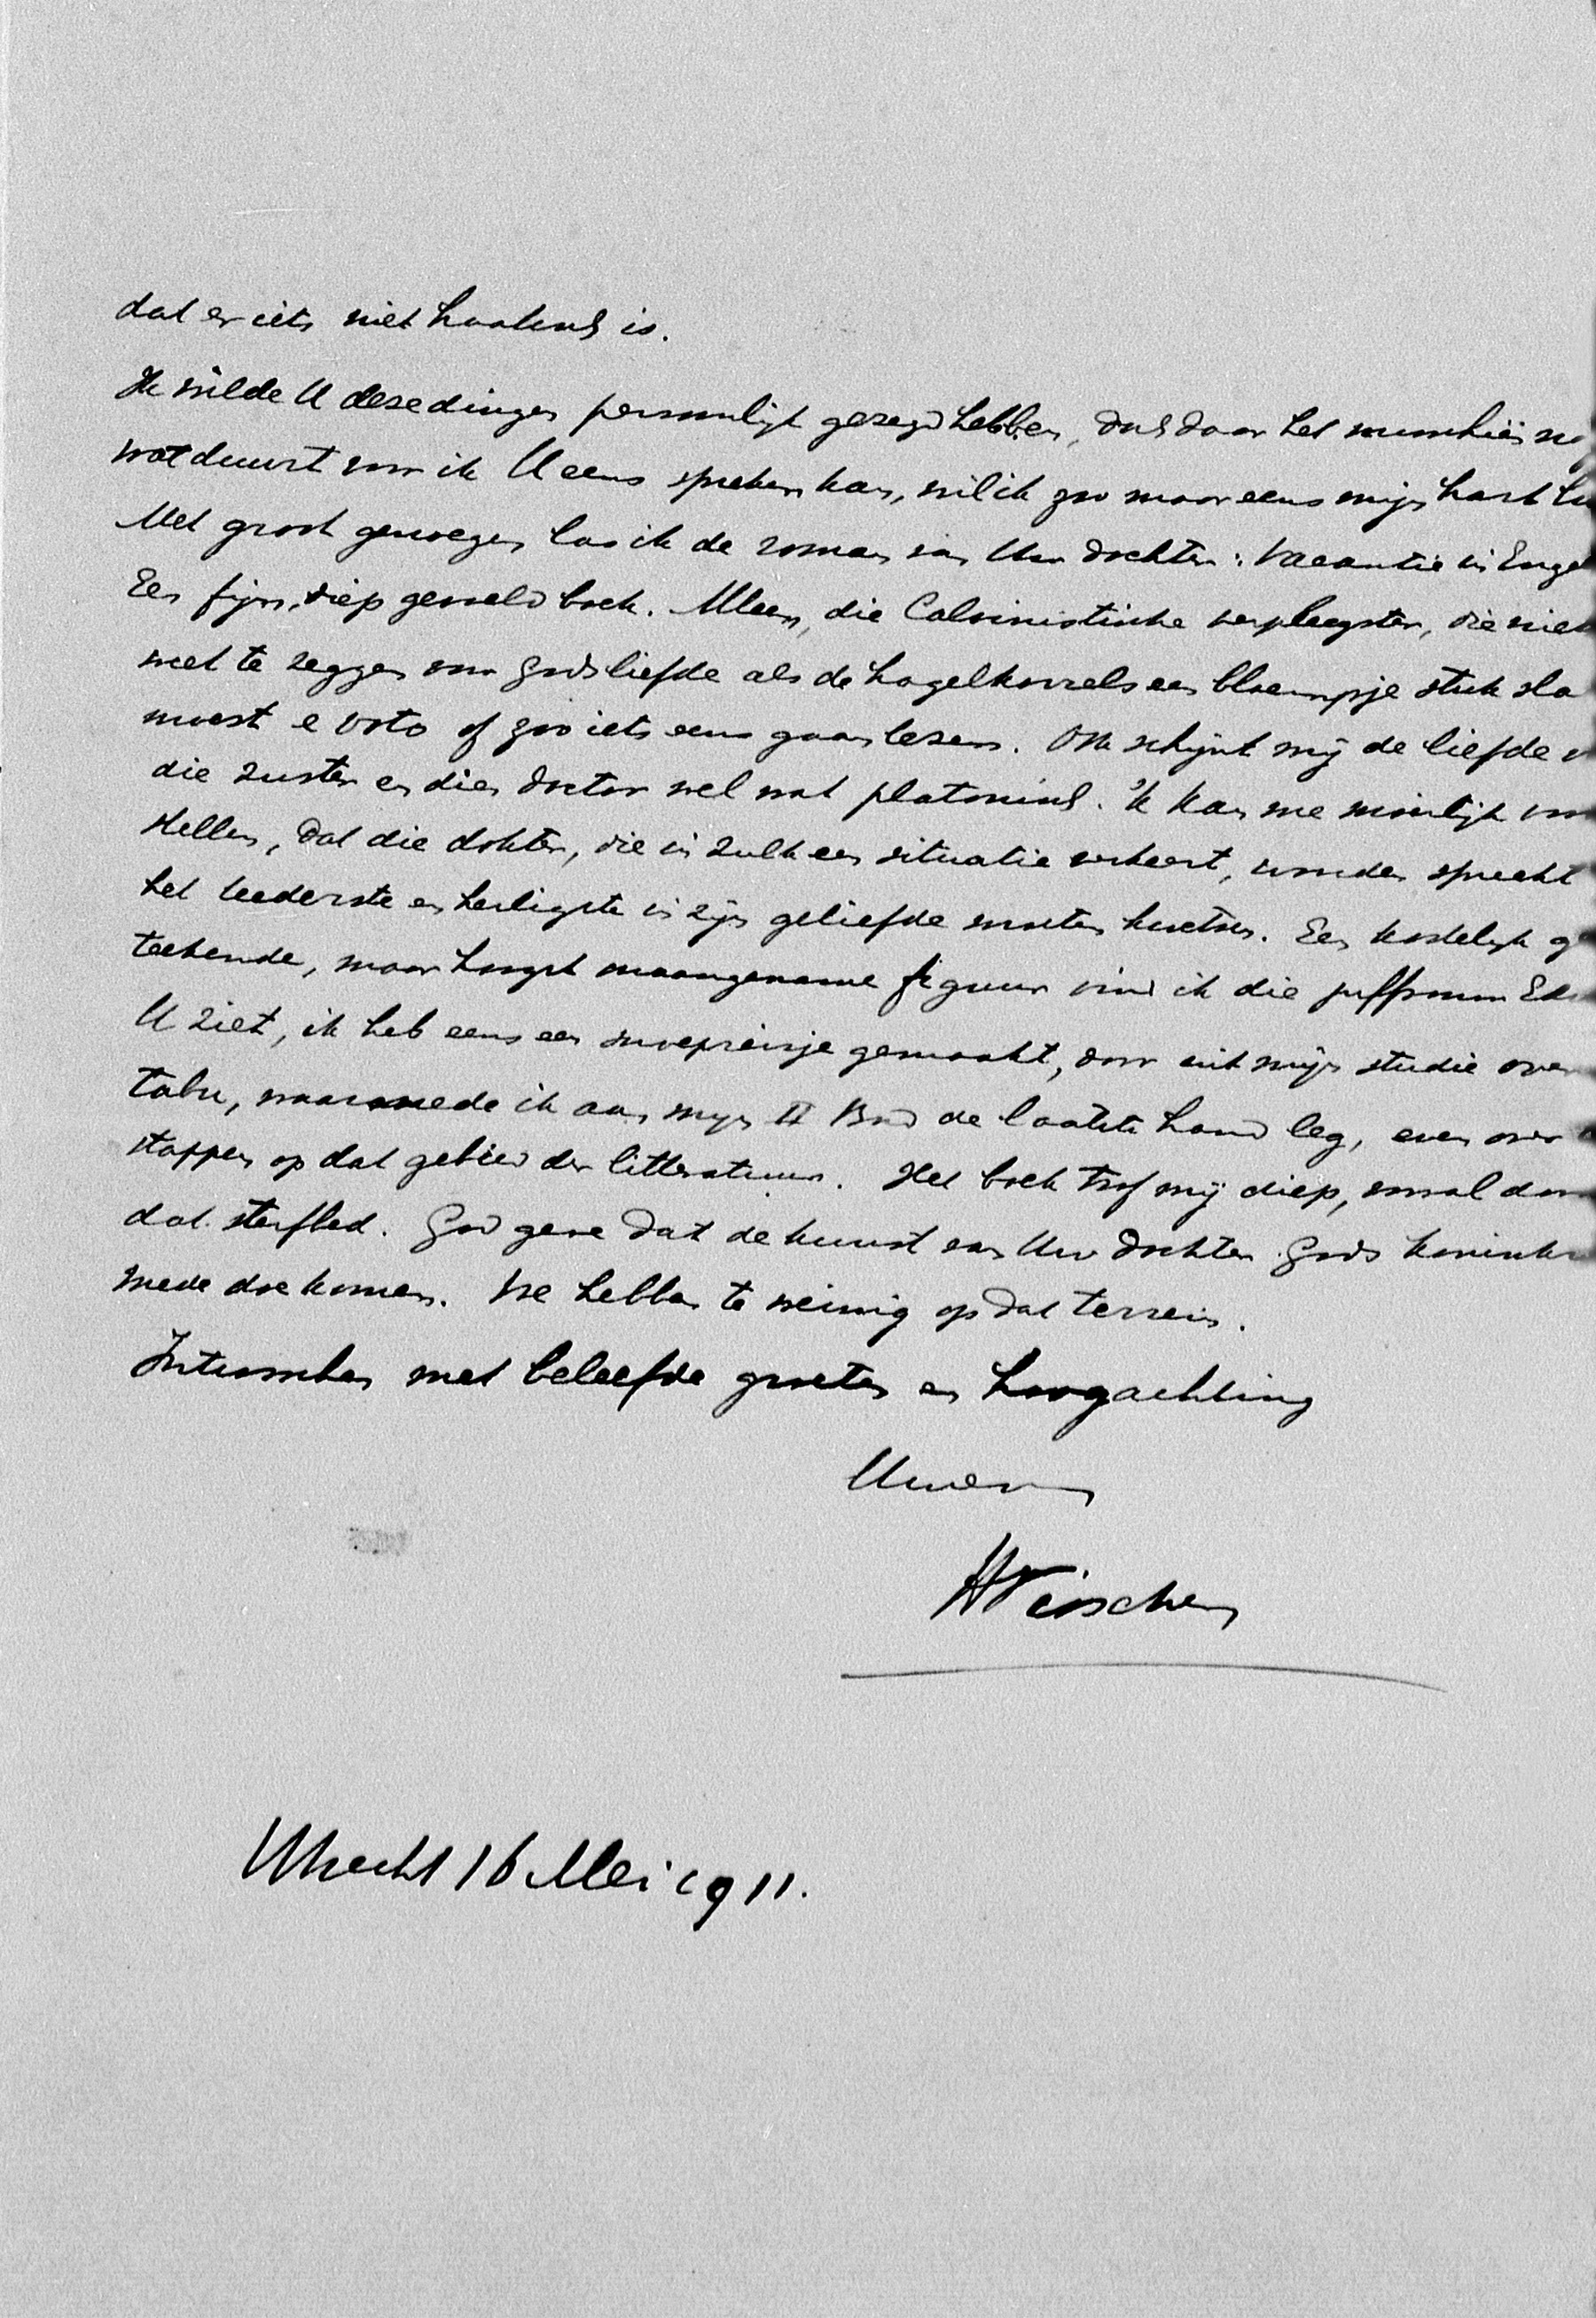 dat er iets niet kostend is.
Ik wilde U deze dingen persoonlijk gezegd hebben, dus daar het misschien no
wat duurt voor ik U eens spreken kan, wil ik zoo maar eens mijn hart lu
Met groot genoegen las ik de roman van Uw dochter: Vacantie in Enge
Een fijn, diep gevoeld boek. Alleen, die Calvinistische verpleegster, die niet
weet te zeggen van Gods liefde als de hagelkorrels een bloempje stuk sla
moest e voto of zoo iets eens gaan lezen. Ook schijnt mij de liefde v
die zuster en dien doctor wel wat platonisch. 'k Kan me moeilijk voor
stellen, dat die dokter, die in zulk een situatie verkeert, zonder spreekt
het teederste en heiligste in zijn geliefde moeten kwetsen. Een kostelijk ge
teekende, maar hoogst onaangename figuur vind ik die juffrouw
U ziet, ik heb eens een snoepreisje gemaakt, door uit mijn studie over
tabu, waarmede ik aan mijn II Bnd de laatste hand leg, even over
stappen op dat gebied der litteratuur. Het boek trof mij diep, vooral door
dat sterfbed. God geve dat de kunst van Uw dochter Gods koninkr
mede doe komen. We hebben te weinig op dat terrein.
Intusschen met beleefde groeten en hoogachting
Uwen
HVisscher
Utrecht 16 Mei 1911.